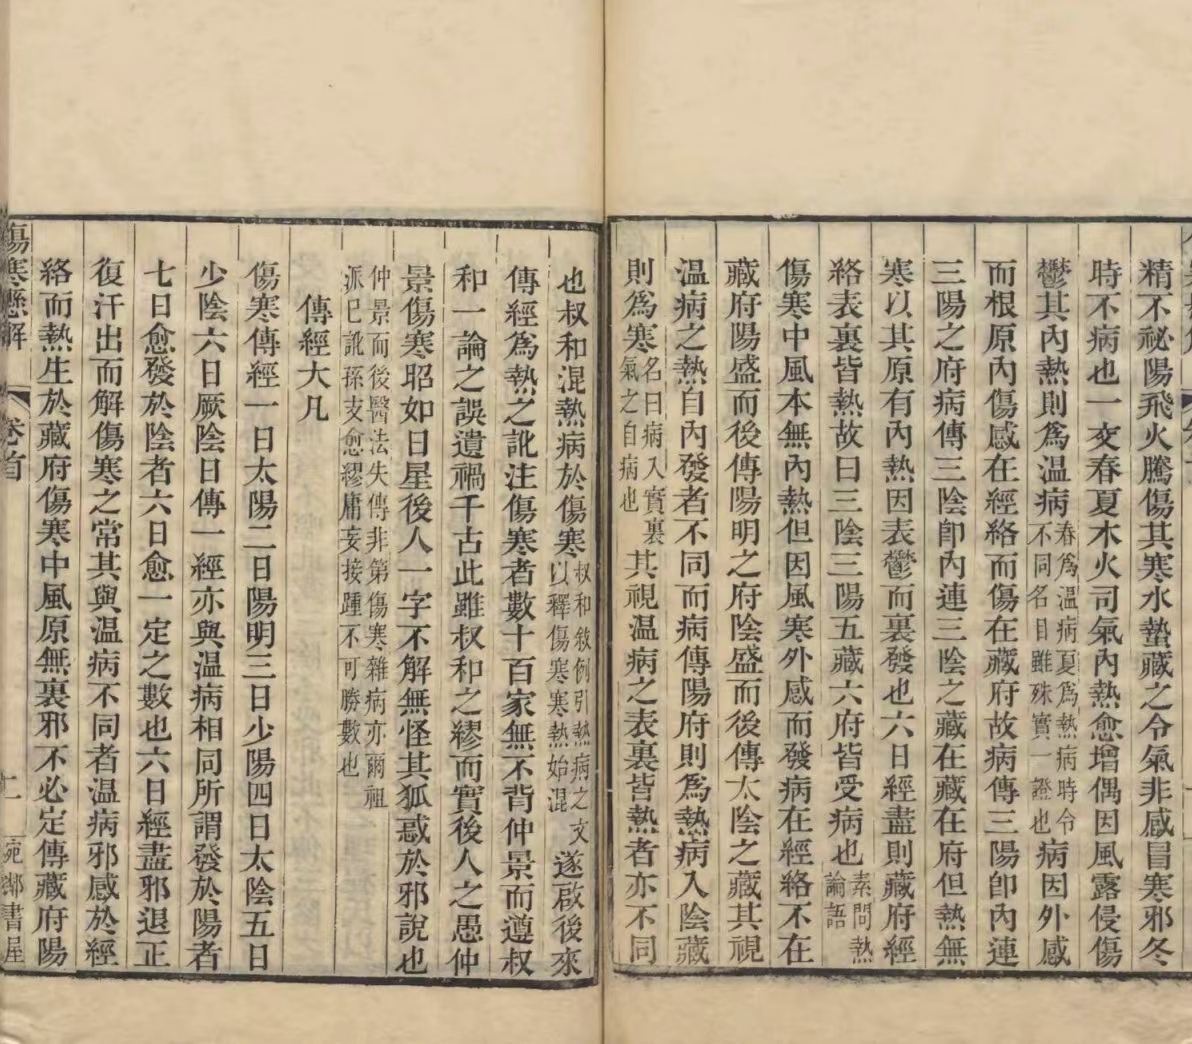 精不祕陽飛火騰傷其寒水蟄藏之令氣非感冒寒邪冬
時不病也一交春夏木火司氣內熱愈增偶因風露侵傷
鬱其內熱則爲溫病春爲溫病夏爲熱病時令不同名目雖殊實一證也病因外感
而根原內傷感在經絡而傷在藏府故病傳三陽卽內連
三陽之府病傳三陰卽內連三陰之藏在藏在府但熱無
寒以其原有內熱因表鬱而裏發也六日經盡則藏府經
絡表裏皆熱故曰三陰三陽五藏六府皆受病也素問熱論語
傷寒中風本無內熱但因風寒外感而發病在經絡不在
藏府陽盛而後傳陽明之府陰盛而後傳太陰之藏其視
溫病之熱自內發者不同而病傳陽府則爲熱病入陰藏
則爲寒名曰病入實裏氣之自病也其視溫病之表裏皆熱者亦不同
也叔和混熱病於傷寒叔和敘例引熱病之文以釋傷寒寒熱始混遂啟後來
傳經爲熱之訛注傷寒者數十百家無不背仲景而遵叔
和一論之誤遺禍千古此雖叔和之繆而實後人之愚仲
景傷寒昭如日星後人一字不解無怪其狐惑於邪說也
仲景而後醫法失傳非第傷寒雜病亦爾祖派已訛孫支愈繆庸妄接踵不可勝數也
傳經大凡
傷寒傳經一日太陽二日陽明三日少陽四日太陰五日
少陰六日厥陰日傳一經亦與溫病相同所謂發於陽者
七日愈發於陰者六日愈一定之數也六日經盡邪退正
復汗出而解傷寒之常其與溫病不同者溫病邪感於經
絡而熱生於藏府傷寒中風原無裏邪不必定傳藏府陽
傷寒懸解 卷首 二 宛鄰書屋